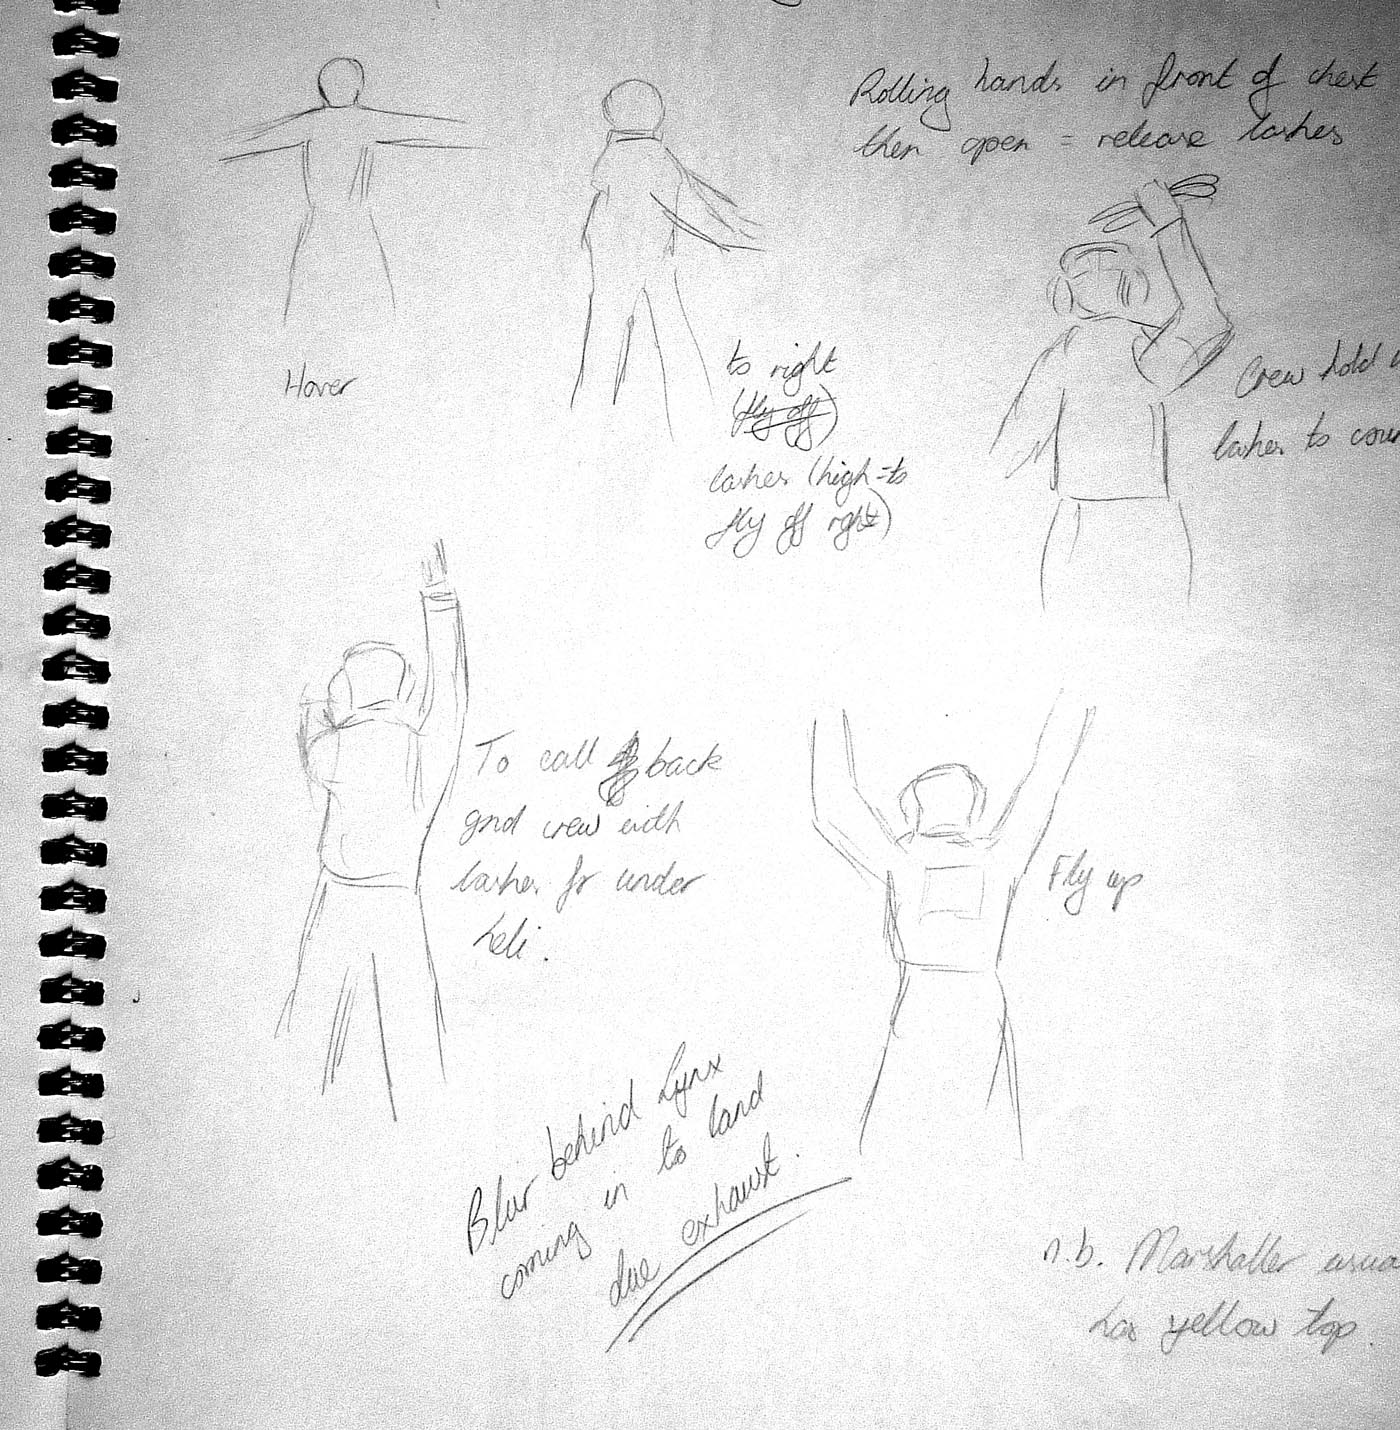 Rolling hands in front of chest
then open = release lashes
Hover
to right
(fly off)
lashes (high = to
fly off right)
Crew hold
lashes to
To call back
gnd crew with
lashes fr under
heli.
Fly up
Blur behind Lynx
coming in to land
due exhaust.
n.b. Marshaller
has yellow top.